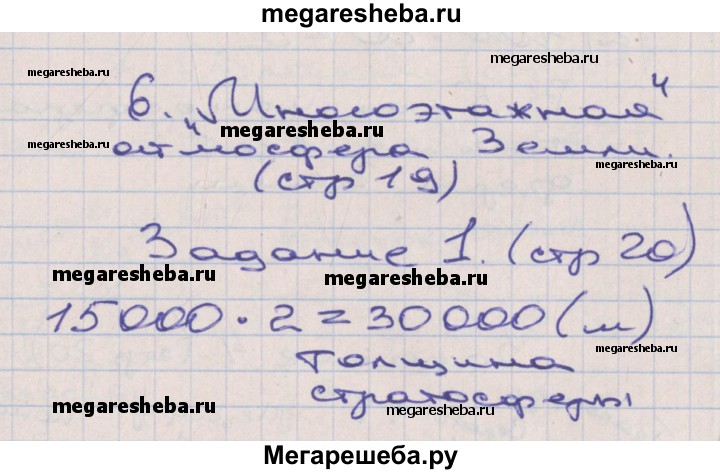 megaresheba.ru
megaresheba.ru
megaresheba.ru
6. „Многоэтажная“
megaresheba.ru
megaresheba.ru
атмосфера Земли.
megaresheba.ru
(стр 19)
Задание 1. (стр 20)
megaresheba.ru
megaresheba.ru
15000 · 2 = 30000 (м)
megaresheba.ru
толщина
стратосферы
megaresheba.ru
megaresheba.ru
Мегарешеба.ру